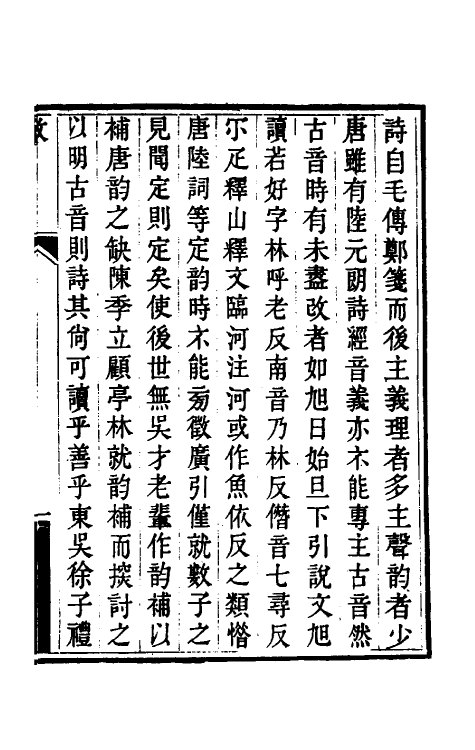 詩自毛傳鄭箋而後主義理者多主聲韵者少
唐雖有陸元朗詩經音義亦不能專主古音然
古音時有未盡改者如旭日始旦下引說文旭
讀若好字林呼老反南音乃林反僭音七尋反
尒疋釋山釋文臨河注河或作魚依反之類惜
唐陸詞等定韵時不能㫄徵廣引僅就數子之
見聞定則定矣使後世無吳才老輩作韵補以
補唐韵之缺陳季立顧亭林就韵補而撰討之
以明古音則詩其尙可讀乎善乎東吳徐子禮